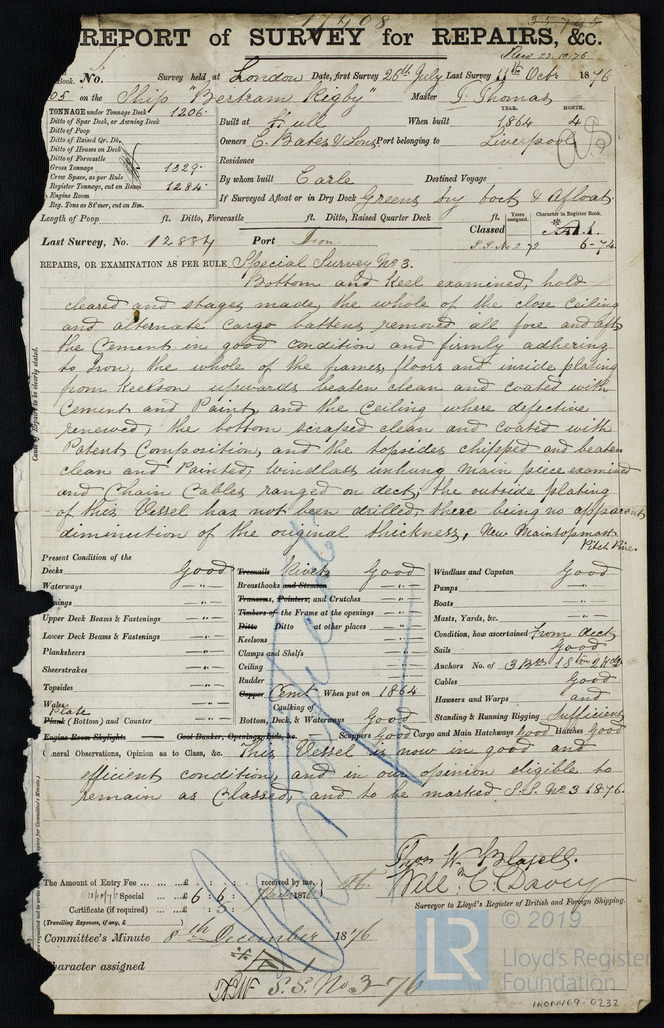 17408
35795
REPORT of SURVEY for REPAIRS, &c.
Recd 23.10.76
Book. No. Survey held at London Date, first Survey 26th July Last Survey 11th Octbr 1876
05 on the Ship "Bertram Rigby" Master T. Thomas
YEAR. MONTH.
TONNAGE under Tonnage Deck 1206.
Ditto of Spar Deck, or Awning Deck
Ditto of Poop
Ditto of Raised Qr. Dk.
Ditto of Houses on Deck
Ditto of Forecastle
Gross Tonnage 1329.
Crew Space, as per Rule
Register Tonnage, cut on Beam 1284.
Engine Room
Reg. Tons as St'mer, cut on Bm.
Built at Hull When built 1864 4
Owners E. Bates & Sons Port belonging to Liverpool
Residence
By whom built Earle Destined Voyage
If Surveyed Afloat or in Dry Dock Greens dry dock & Afloat.
Length of Poop ft. Ditto, Forecastle ft. Ditto, Raised Quarter Deck ft.
Years assigned. Character in Register Book.
Classed A.1.
Last Survey, No. 12834 Port Iron S.S. No 2 72 6-74
REPAIRS, OR EXAMINATION AS PER RULE Special Survey No. 3.
Bottom and Keel examined, hold
cleared and stages made, the whole of the close Ceiling
and alternate Cargo battens removed all fore and aft,
the Cement in good condition and firmly adhering
to Iron, the whole of the frames, floors and inside plating
from Keelson upwards beaten clean and coated with
Cement and Paint, and the Ceiling where defective
renewed, the bottom scraped clean and coated with
Patent Composition, and the topsides chipped and beaten
clean and Painted, Windlass unhung Main piece examined
and Chain Cables ranged on deck, the outside plating
of this Vessel has not been drilled, there being no apparent
diminution of the original thickness, New Maintopmast
Pitch Pine.
Cause of Repairs to be clearly stated.
Present Condition of the
Decks Good
Waterways "
Upper Deck Beams & Fastenings "
Lower Deck Beams & Fastenings "
Planksheers "
Sheerstrakes "
Topsides "
Wales "
Plate
Plank (Bottom) and Counter "
Treenails Rivets Good
Breasthooks and Stemson "
Transoms, Pointers, and Crutches "
Timbers of the Frame at the openings "
Ditto Ditto at other places "
Keelsons "
Clamps and Shelfs "
Ceiling "
Rudder "
Copper Cemt When put on 1864.
Caulking of
Bottom, Deck, & Waterways Good
Windlass and Capstan Good
Pumps "
Boats "
Masts, Yards, &c. "
Condition, how ascertained from deck
Sails Good
Anchors No. of 3 Brs 1 Stm 2 Kdgs
Cables Good
Hawsers and Warps and
Standing & Running Rigging Sufficient
Engine Room Skylights Coal Bunker, Openings, Lids, &c. Scuppers Good Cargo and Main Hatchways Good Hatches Good
General Observations, Opinion as to Class, &c. This Vessel is now in good and
efficient condition, and in our opinion eligible to
remain as Classed, and to be marked S.S. No. 3 1876.
Thos W. Blazell.
Will m C. Davey
Surveyor to Lloyd's Register of British and Foreign Shipping.
The Amount of Entry Fee ... £ : : received by me,
Special ... £ 6 : 6 : 187
Certificate (if required) ... £ : 5 :
(Travelling Expenses, if any, £
Committee's Minute 8th December 1876
Character assigned A 1
S.S. No 3-76
© 2019
LR
Lloyd's Register
Foundation
IRON469-0232